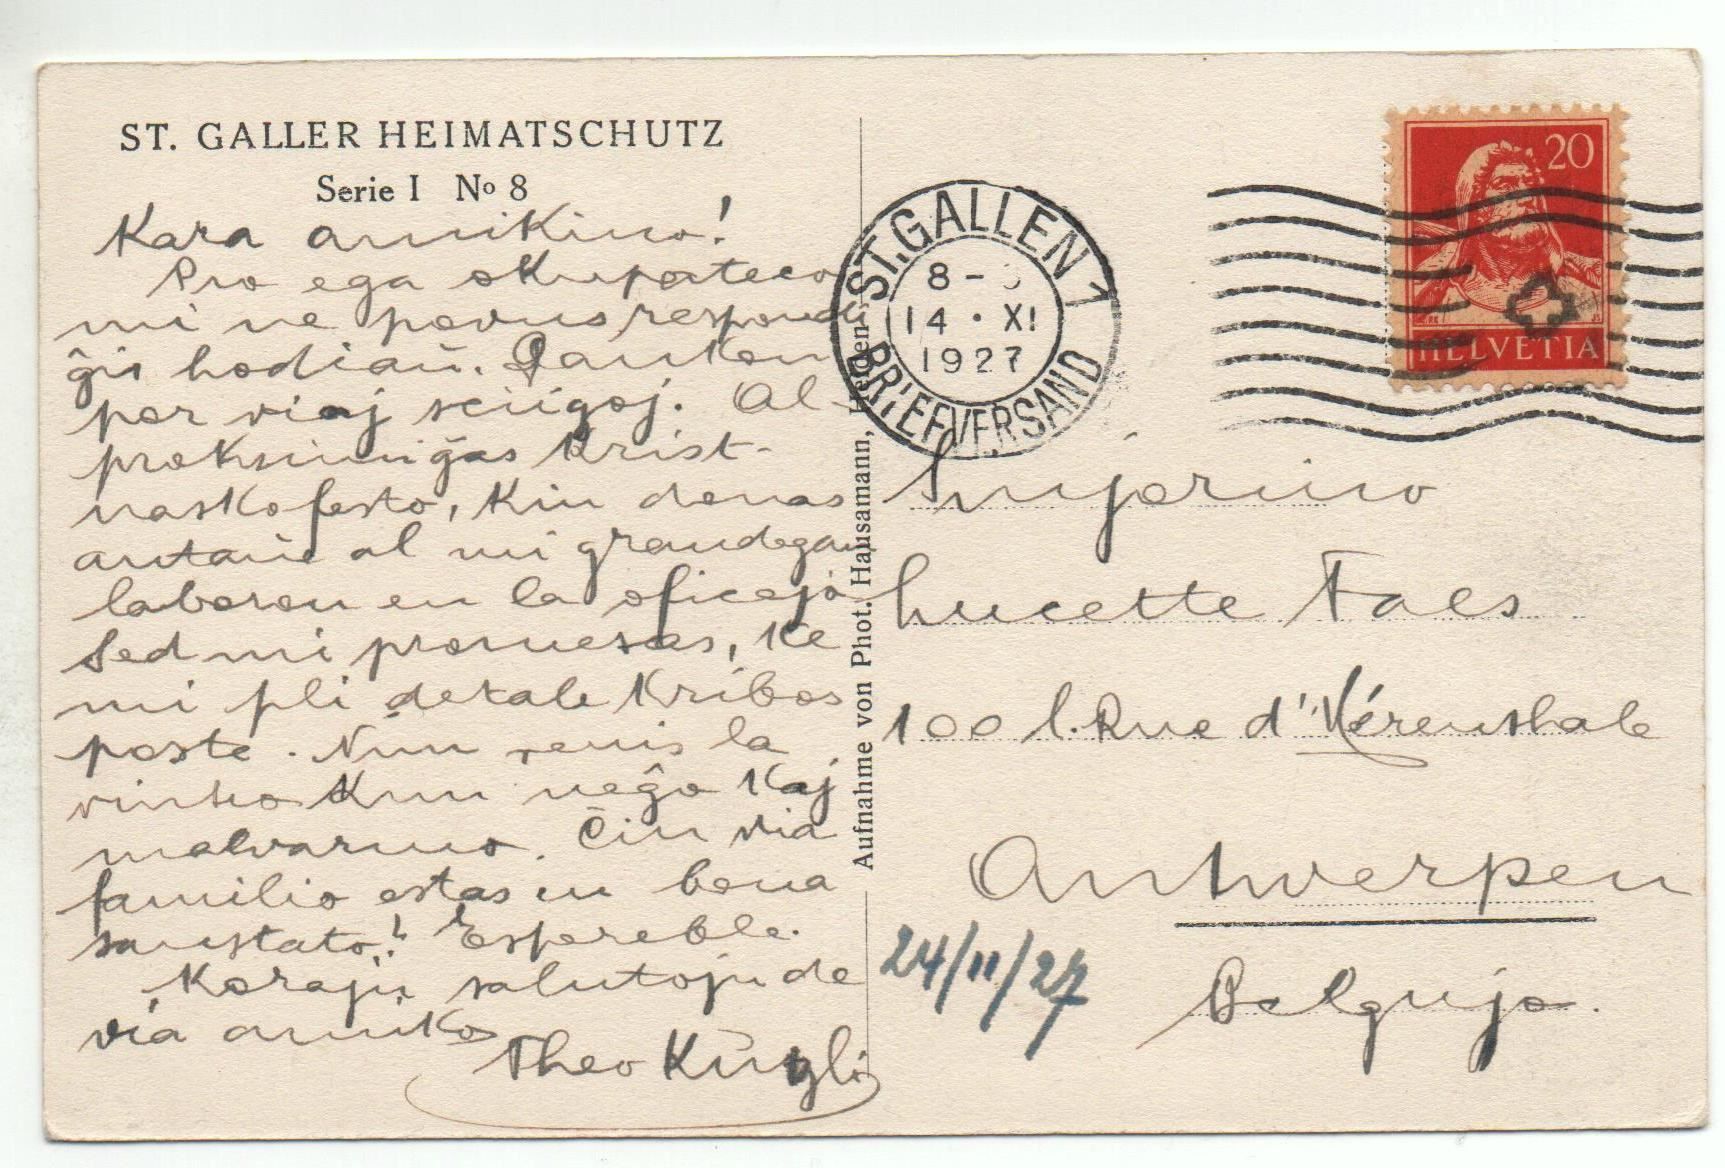 ST. GALLER HEIMATSCHUTZ
Serie I No 8
Kara amikino!
Pro ega okupateco
mi ne povus respondi
ĝis hodiaŭ. Dankon
por viaj sciigoj. Al-
proksimiĝas Krist-
naskofesto, kiu donas
antaŭe al mi grandegan
laboron en la oficejo
Sed mi promesas, ke
mi pli detale kribos
poste. Nun venis la
vintro kun neĝo kaj
malvarmo. Ĉiu via
familio estas en bona
sanstato? Espereble.
Korajn salutojn de
via amiko
Theo Künzli
Aufnahme von Phot. Hausamann, Heiden
ST. GALLEN 1
8 -
14 · XI
1927
BRIEFVERSAND
20
HELVETIA
Lucette Faes
100 l. Rue d'Hérenthals
Antwerpen
Belgujo.
24/11/27